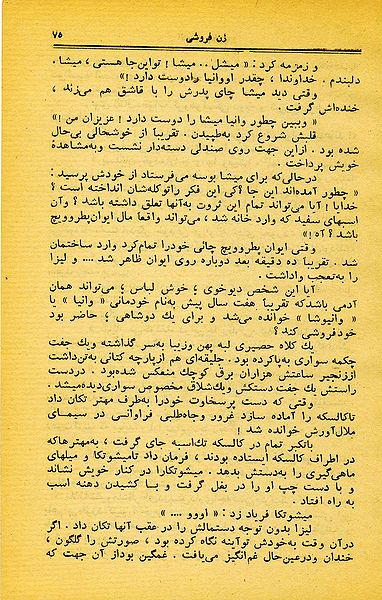 زن فروشی
۷۵
و زمزمه کرد : « میشل .. میشا ! تو این‌جا هستی ، میشا .
دلبندم . خداوندا ، چقدر او وانیا را دوست دارد !»
وقتی دید میشا چای پدرش را با قاشق هم می‌زند ،
خنده‌اش گرفت .
« وببین چطور وانیا میشا را دوست دارد ! عزیزان من !»
قلبش شروع کرد به‌طپیدن . تقریبا از خوشحالی بی‌حال
شده بود . ازاین جهت روی صندلی دسته‌دار نشست وبه‌مشاهدهٔ
خویش پرداخت .
درحالی‌که برای میشا بوسه می‌فرستاد از خودش پرسید :
« چطور آمده‌اند این جا ؟ کی این فکر را توکله‌شان انداخته است ؟
خدایا ! آیا می‌تواند تمام این ثروت به‌آنها تعلق داشته باشد ؟ وآن
اسبهای سفید که وارد خانه شد ، می‌تواند واقعا مال ایوان‌پطروویچ
باشد ؟ آه !»
وقتی ایوان پطروویچ چائی خودرا تمام‌کرد وارد ساختمان
شد . تقریبا ده دقیقه بعد دوباره روی ایوان ظاهر شد .... و لیزا
را به‌تعجب واداشت .
آیا این شخص دیوخوی ، خوش لباس ؛ می‌تواند همان
آدمی باشدکه تقریباً هفت سال پیش به‌نام خودمانی « وانیا » یا
« وانیوشا » خوانده می‌شد و برای یك دوشاهی ؛ حاضر بود
خودفروشی کند ؟
یك کلاه حصیری لبه پهن وزیبا به‌سر گذاشته ویك جفت
چکمه سواری به‌پاکرده بود . جلیقه‌ای هم ازپارچه کتانی به‌تن‌داشت
اززنجیر ساعتش هزاران برق کوچك منعکس شده‌بود . دردست
راستش یك جفت دستکش ویك‌شلاق مخصوص سواری‌دیده‌میشد .
وقتی که دست پرسخاوت خودرا به‌طرف مهتر تکان داد
تاکالسکه را آماده سازد غرور وجاه‌طلبی فراوانی در سیمای
ملال‌آورش خوانده شد !
باتکبر تمام در کالسکه تك‌اسبه جای گرفت ، به‌مهترهاکه
در اطراف کالسکه ایستاده بودند ، فرمان داد تامیشوتکا و میلهای
ماهی‌گیری را به‌دستش بدهد . میشوتکارا در کنار خویش نشاند
و با دست چپ او را در بغل گرفت و بـا کشیدن دهنه اسب
به راه افتاد .
میشوتکا فریاد زد : « اووو .... »
لیزا بدون توجه دستمالش را در عقب آنها تکان داد . اگر
درآن وقت به‌خودش توآینه نگاه کرده بود ، صورتش را گلگون ،
خندان ودرعین‌حال غم‌انگیز می‌یافت . غمگین بوداز آن جهت که